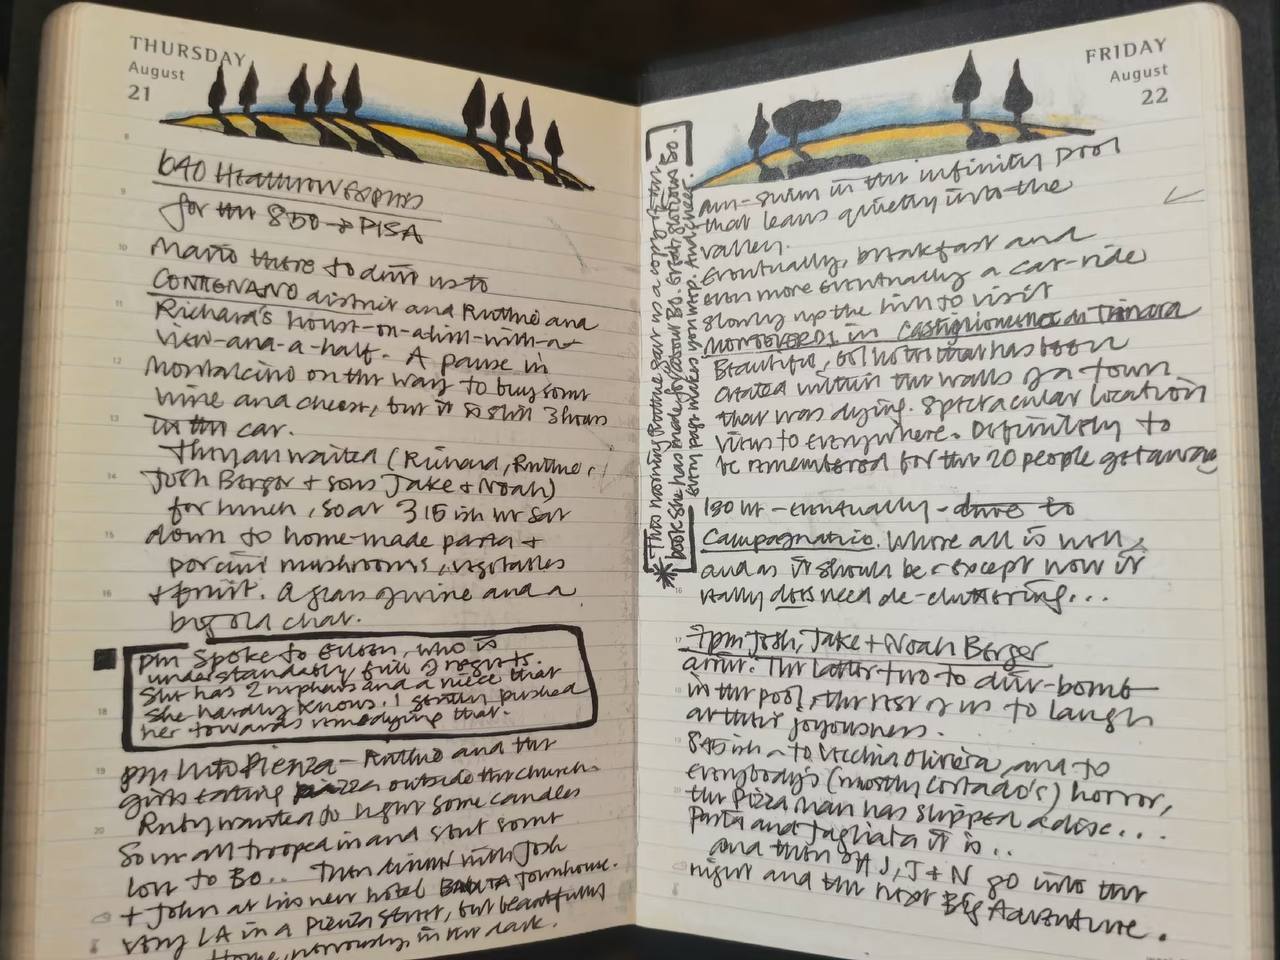 THURSDAY
August
21
640 Heathrow Express
for the 850 → PISA
Mario there to drive us to
CONTIGNANO district and Ruthie and
Richard's house-on-a-hill-with-a-
view-and-a-half. A pause in
Montalcino on the way to buy some
wine and cheese, but it is still 3 hours
in the car.
They all waited (Richard, Ruthie,
Josh Berger + sons Jake + Noah)
for lunch, so at 315 ish we sat
down to home-made pasta +
porcini mushrooms, vegetables
+ fruit. A glass of wine and a
big old chat.
pm Spoke to Eileen, who is
understandably full of regrets.
She has 2 nephews and a niece that
she hardly knows. I gently pushed
her towards remedying that.
pm Into Pienza - Ruthie and the
girls eating pizza outside the church.
Ruby wanted to light some candles
so we all trooped in and sent some
love to Bo.. Then dinner with Josh
+ John at his new hotel Townhouse.
very LA in a Pienza street, but beautifully
Home, nervously, in the dark.
FRIDAY
August
22
am - swim in the infinity pool
that leans quietly into the
valley.
Eventually, breakfast and
even more eventually a car-ride
slowly up the hill to visit
MONTEVERDI in Castiglioncello di Trinoro
Beautiful, hotel that has been
created within the walls of a town
that was dying. Spectacular location
views to everywhere. Definitely to
be remembered for the 20 people getaway
130 we - eventually - drive to
Campagnatico. Where all is well,
and as it should be - except now it
really does need de-cluttering...
7pm Josh, Jake + Noah Berger
arrive. The latter two to dive-bomb
in the pool, the rest of us to laugh
at their joyousness.
845 ish - to Vecchia Oliviera, and to
everybody's (mostly Cortado's) horror,
the Pizza man has slipped a disc...
Pasta and Tagliata it is..
and then off J, J + N go into the
night and the next Big Adventure.
* This morning Ruthie gave us a copy of the
book she has made for/about Bo. Great, glorious Bo.
Every page makes you weep. And cheer.